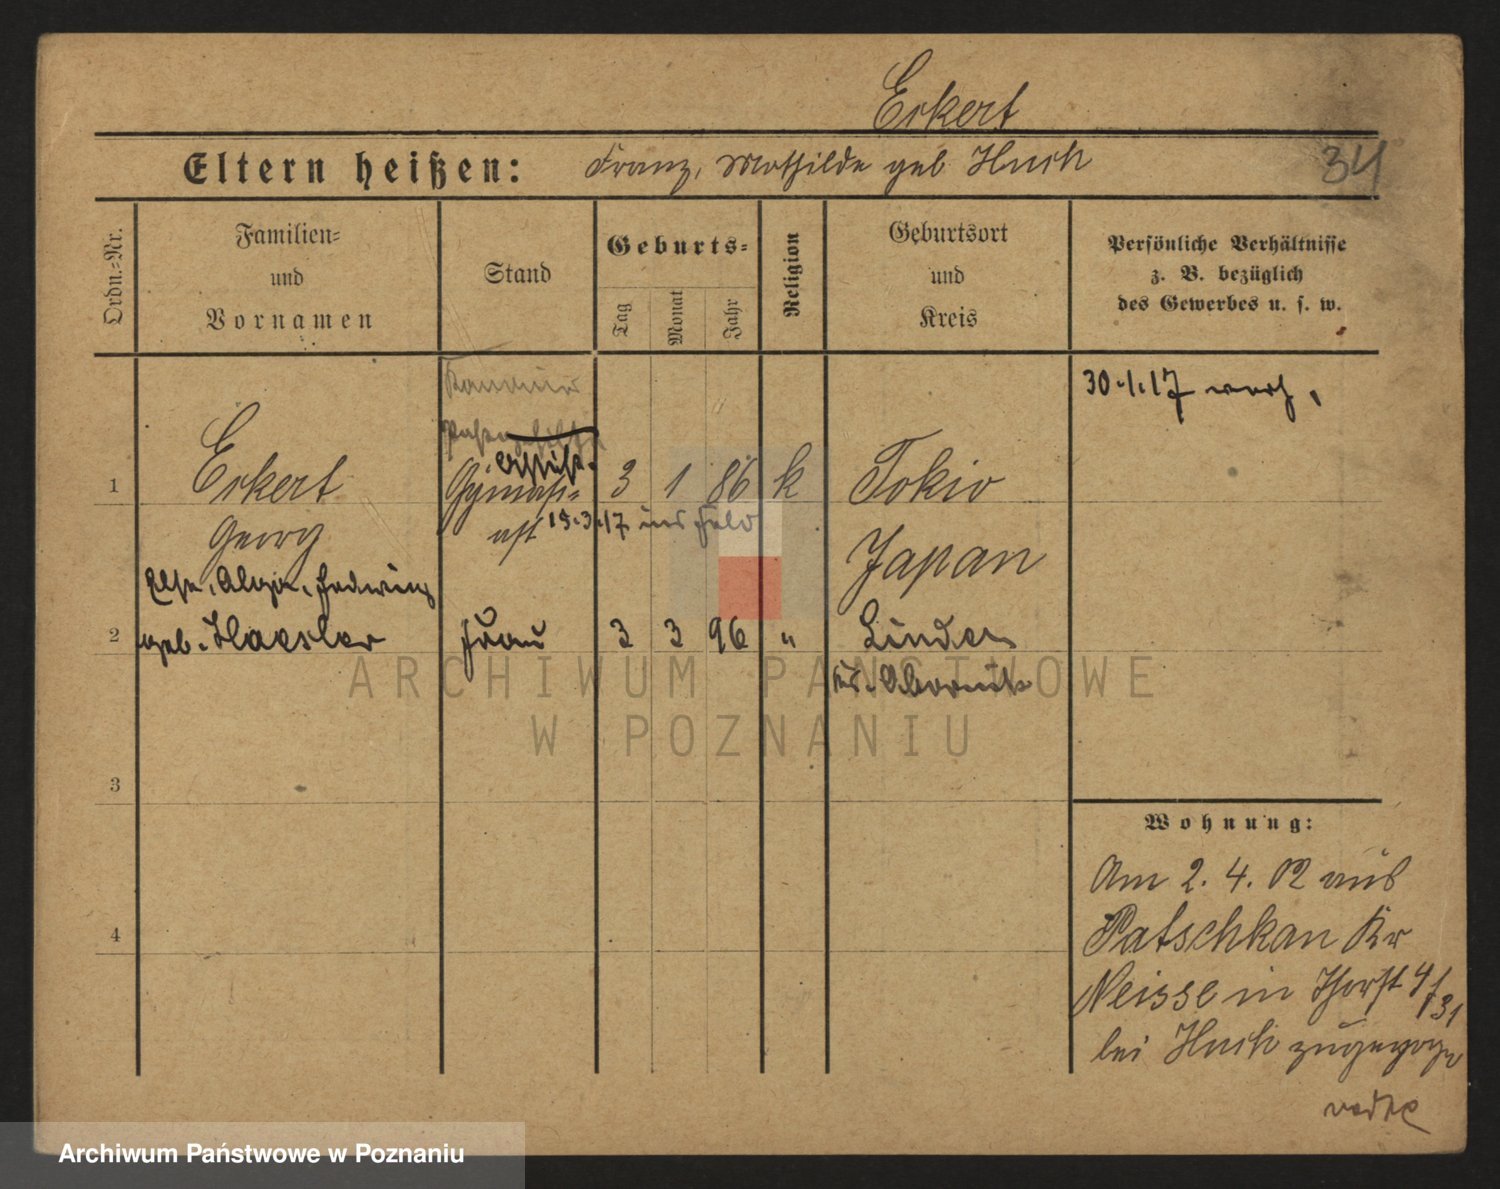 Eckert
Eltern heißen: Franz, Mathilde geb Huch
34
Ordn.-Nr.
Familien-
und
Vornamen
Stand
Geburts-
Tag
Monat
Jahr
Religion
Geburtsort
und
Kreis
Persönliche Verhältnisse
z. B. bezüglich
des Gewerbes u. s. w.
30.1.17 verh.
1 Eckert Gymnasi- 3 1 86 k Tokio
Georg ast 15.3.17 ins Feld Japan
Else, Olga, Hedwig
2 geb. Haesler Frau 3 3 96 " Linden
Kr. Obornik
3
4
Wohnung:
Am 2. 4. 02 aus
Patschkau Kr
Neisse in
bei Huch zugezogen
ARCHIWUM PAŃSTWOWE
W POZNANIU
Archiwum Państwowe w Poznaniu